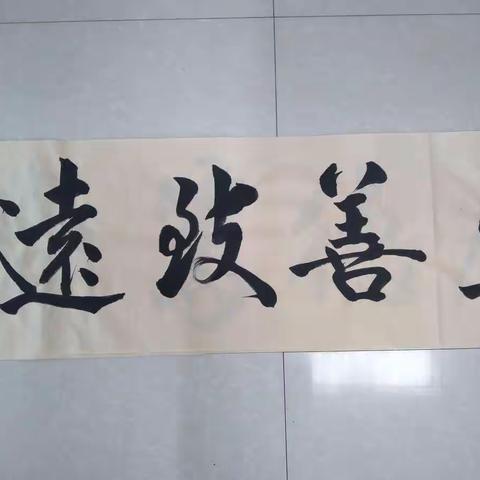 善致遠